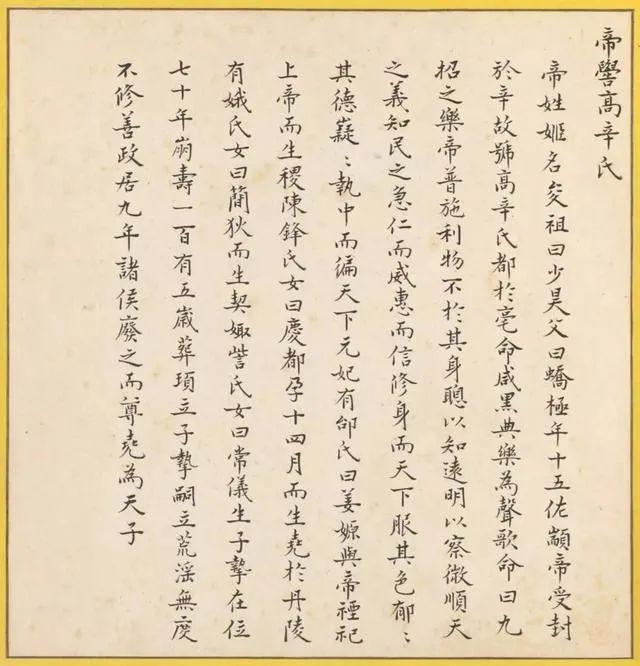 帝嚳高辛氏
帝姓姬名夋祖曰少昊父曰蟜極年十五佐顓帝受封
於辛故號高辛氏都於亳命咸黑典樂為聲歌命曰九
招之樂帝普施利物不於其身聰以知遠明以察微順天
之義知民之急仁而威惠而信修身而天下服其色郁〻
其德嶷〻執中而徧天下元妃有邰氏曰姜嫄與帝禋祀
上帝而生稷陳鋒氏女曰慶都孕十四月而生堯於丹陵
有娀氏女曰簡狄而生契娵訾氏女曰常儀生子摯在位
七十年崩壽一百有五歲葬頊立子摯嗣立荒淫無度
不修善政居九年諸侯廢之而尊堯為天子